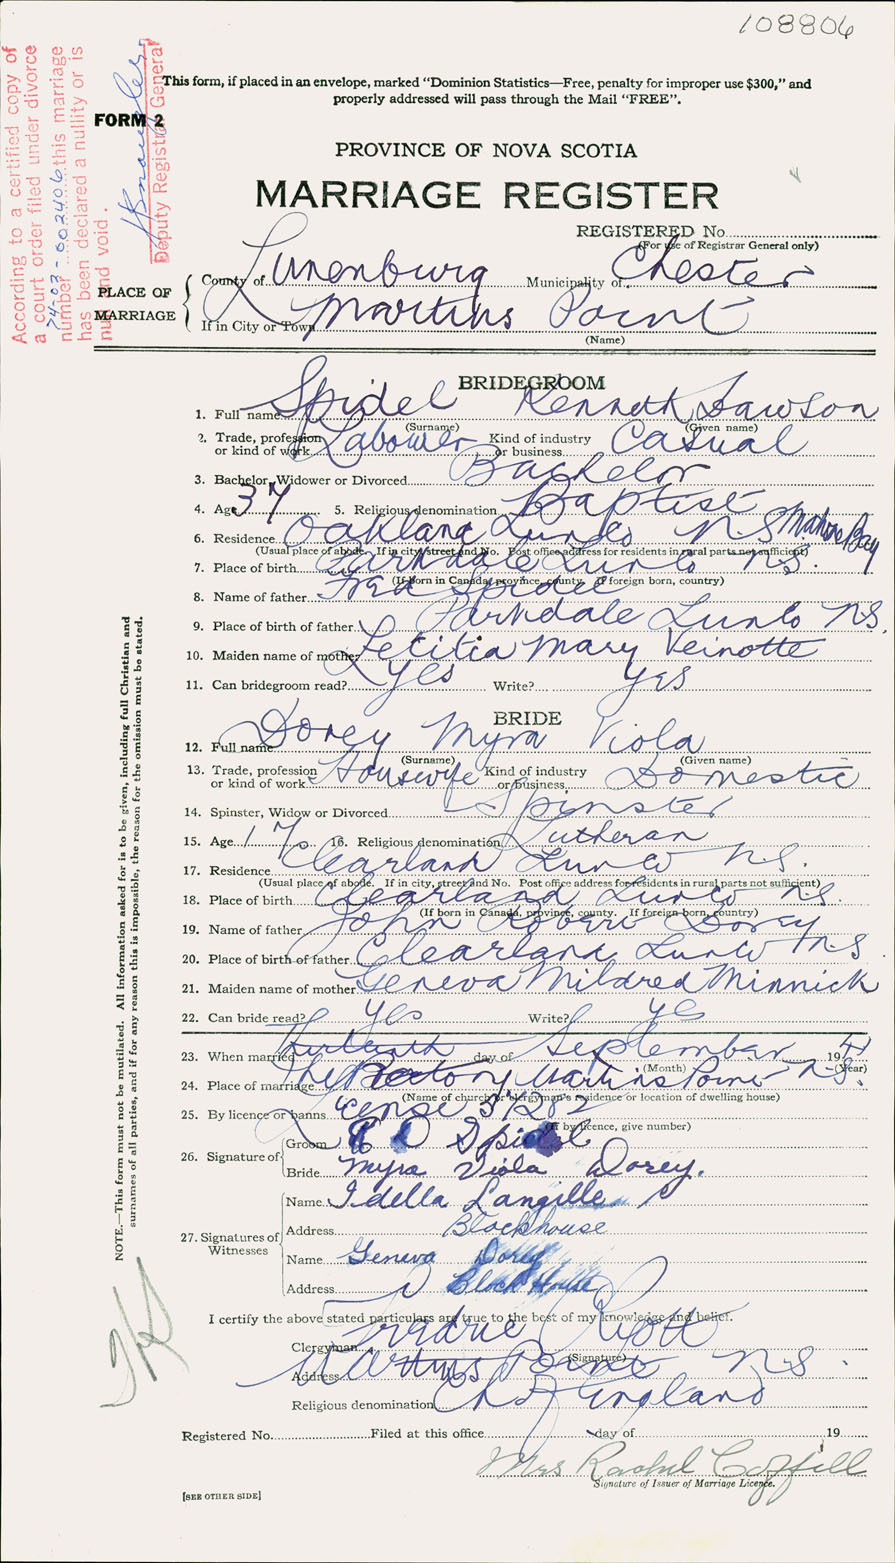 108806
This form, if placed in an envelope, marked “Dominion Statistics—Free, penalty for improper use $300,” and
properly addressed will pass through the Mail “FREE”.
FORM 2
According to a certified copy of
a court order filed under divorce
number 74-03-002406 this marriage
has been declared a nullity or is
null and void.
Deputy Registrar General
PROVINCE OF NOVA SCOTIA
MARRIAGE REGISTER
REGISTERED No.
(For use of Registrar General only)
PLACE OF MARRIAGE
County of Lunenburg Municipality of Chester
If in City or Town Martins Point
(Name)
BRIDEGROOM
1. Full name Spidel Kenneth Dawson
(Surname) (Given name)
2. Trade, profession or kind of work Labourer Kind of industry or business Casual
3. Bachelor, Widower or Divorced Bachelor
4. Age 37 5. Religious denomination Baptist
6. Residence Oakland Lun Co N S Mahone Bay
(Usual place of abode. If in city, street and No. Post office address for residents in rural parts not sufficient)
7. Place of birth Parkdale Lun Co N.S.
(If born in Canada, province, county. If foreign born, country)
8. Name of father Fred Spidel
9. Place of birth of father Parkdale Lun Co N.S.
10. Maiden name of mother Letitia Mary Veinotte
11. Can bridegroom read? yes Write? yes
BRIDE
12. Full name Dorey Myra Viola
(Surname) (Given name)
13. Trade, profession or kind of work Housewife Kind of industry or business Domestic
14. Spinster, Widow or Divorced Spinster
15. Age 17 16. Religious denomination Lutheran
17. Residence Clearland Lun Co N.S.
(Usual place of abode. If in city, street and No. Post office address for residents in rural parts not sufficient)
18. Place of birth Clearland Lun Co N.S.
(If born in Canada, province, county. If foreign born, country)
19. Name of father John Robert Dorey
20. Place of birth of father Clearland Lun Co N S
21. Maiden name of mother Geneva Mildred Minnick
22. Can bride read? yes Write? yes
23. When married day of September 1941
(Month) (Year)
24. Place of marriage The Rectory Martins Point N-S.
(Name of church or clergyman's residence or location of dwelling house)
25. By licence or banns License 31282
(If by licence, give number)
26. Signature of
Groom K D Spidel
Bride Myra Viola Dorey.
27. Signatures of Witnesses
Name Idella Langille
Address Blockhouse
Name Geneva Dorey
Address Block House
I certify the above stated particulars are true to the best of my knowledge and belief.
Clergyman
(Signature)
Address Martins Point N-S.
Religious denomination Ch of England
Registered No. Filed at this office day of 19
Mrs Rachel Coffill
Signature of Issuer of Marriage Licence.
[SEE OTHER SIDE]
NOTE.—This form must not be mutilated. All information asked for is to be given, including full Christian and
surnames of all parties, and if for any reason this is impossible, the reason for the omission must be stated.